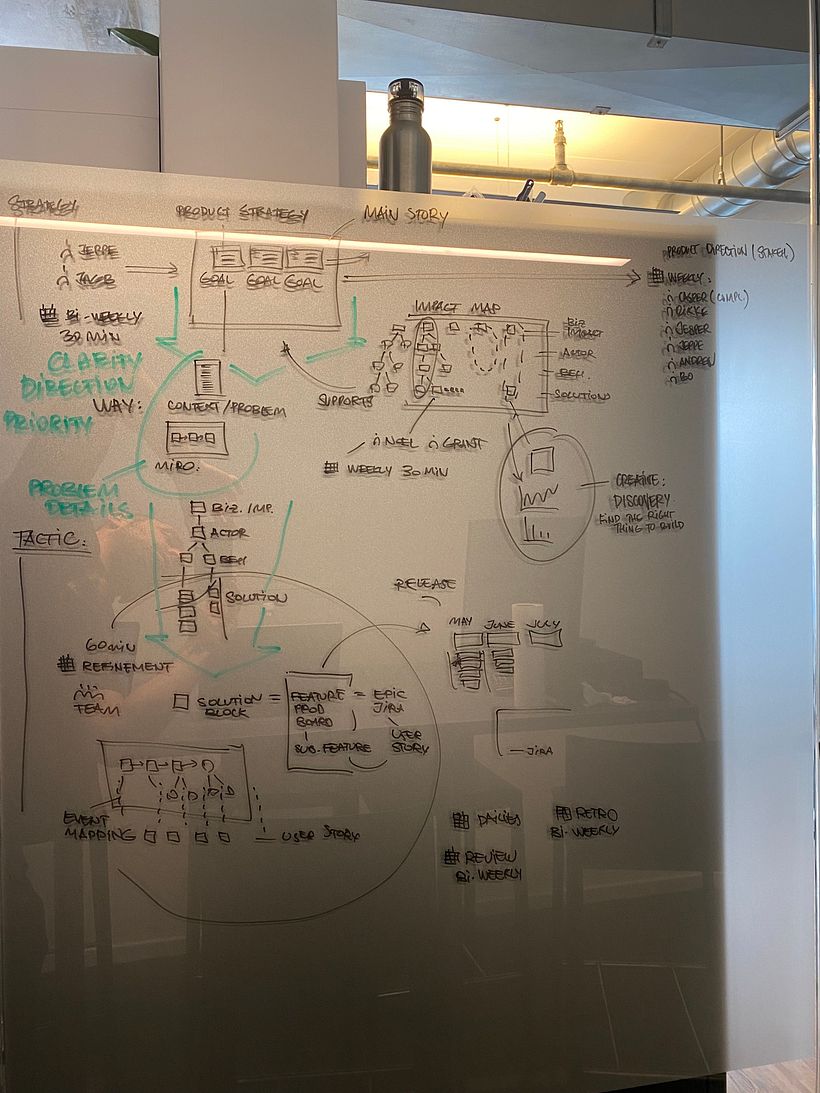 STRATEGY
PRODUCT STRATEGY
MAIN STORY
JEPPE
JACOB
GOAL GOAL GOAL
Bi-WEEKLY
30 MIN
PRODUCT DIRECTION (STAKEH)
WEEKLY:
CASPER (COMPL)
RIKKE
JESPER
JEPPE
ANDREW
BO
CLARITY
DIRECTION
PRIORITY
WAY:
CONTEXT/PROBLEM
MIRO:
IMPACT MAP
BIZ
IMPACT
ACTOR
BEH
SOLUTIONS
SUPPORTS
NOEL GRANT
WEEKLY 30 MIN
CREATIVE:
DISCOVERY
FIND THE RIGHT
THING TO BUILD
PROBLEM
DETAILS
TACTIC:
BIZ. IMP.
ACTOR
BEH
SOLUTION
60 MIN
REFINEMENT
TEAM
RELEASE
MAY JUNE JULY
SOLUTION
BLOCK
=
FEATURE = EPIC
PROD JIRA
BOARD
USER
SUB-FEATURE STORY
JIRA
EVENT
MAPPING
USER STORY
DAILIES
RETRO
Bi-WEEKLY
REVIEW
Bi-WEEKLY